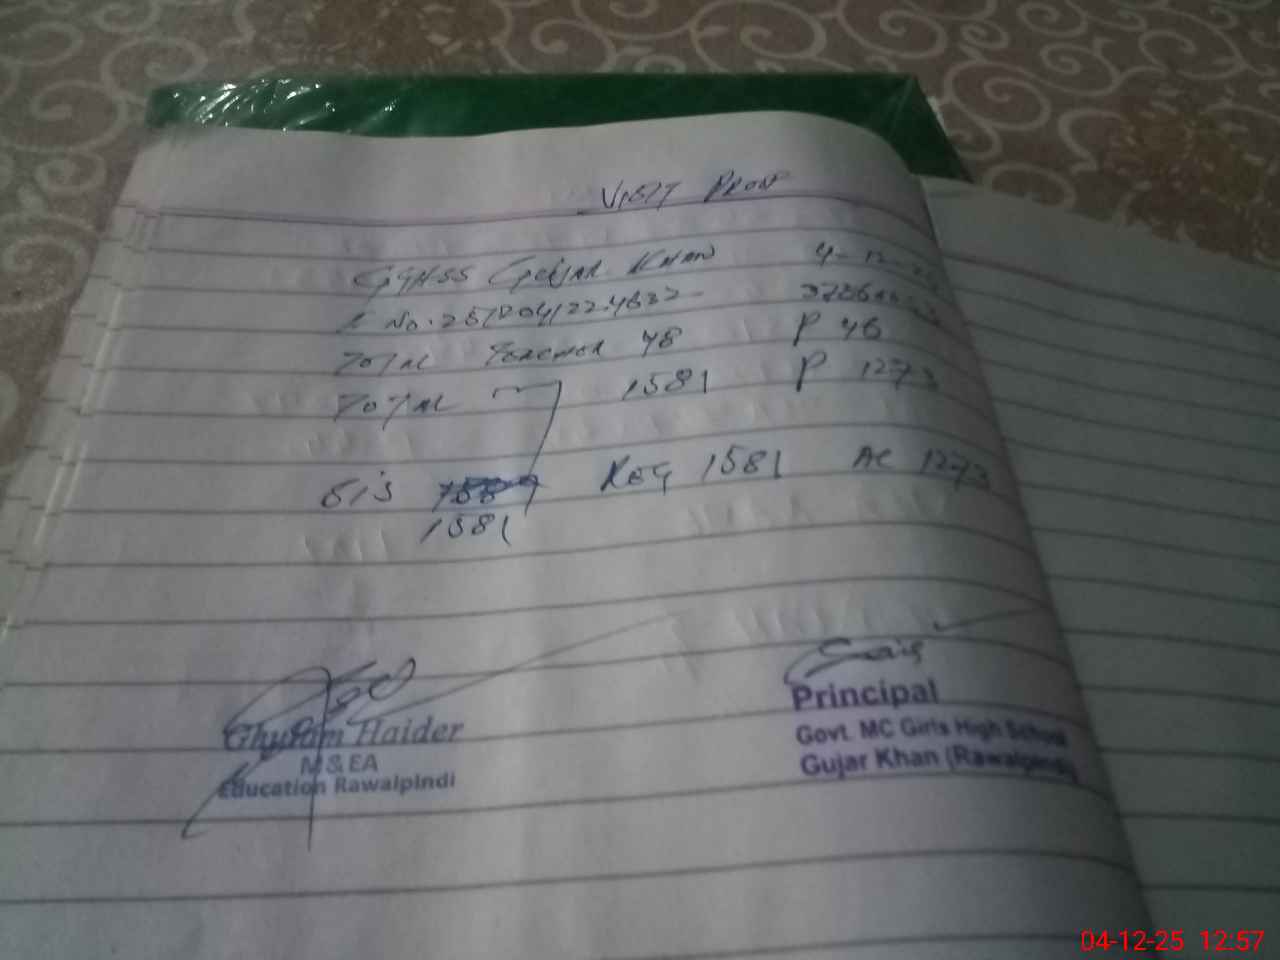 VISIT PROOF
GGHSS Gujar KHAN 4-12-25
No. 
TOTAL TEACHER 48 P 46
TOTAL 1581 P 1273
SIS REG 1581 AC 1273
1581
Ghulam Haider
M & EA
Education Rawalpindi
Principal
Govt. MC Girls High School
Gujar Khan (Rawalpindi)
04-12-25 12:57